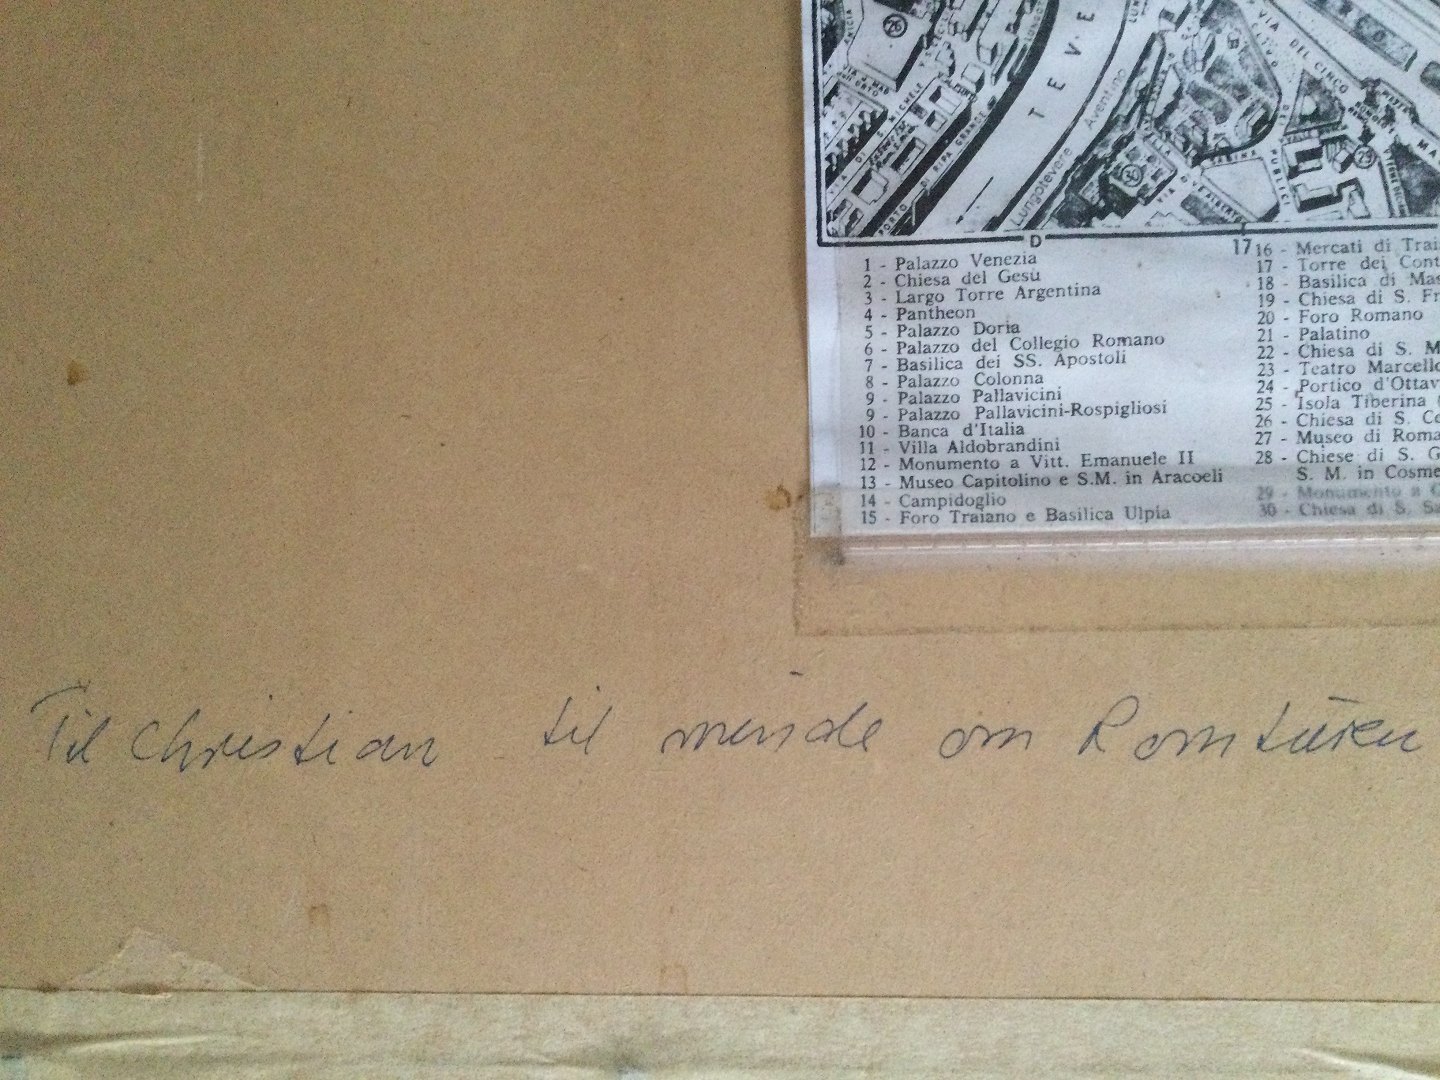 26
TEVE
VIA DEL CIRCO
VIA DI S. MICHELE
PORTO DI RIPA GRANDE
Lungotevere Aventino
PUBLICI
30
29
D
17
1 - Palazzo Venezia
2 - Chiesa del Gesù
3 - Largo Torre Argentina
4 - Pantheon
5 - Palazzo Doria
6 - Palazzo del Collegio Romano
7 - Basilica dei SS. Apostoli
8 - Palazzo Colonna
9 - Palazzo Pallavicini
9 - Palazzo Pallavicini-Rospigliosi
10 - Banca d'Italia
11 - Villa Aldobrandini
12 - Monumento a Vitt. Emanuele II
13 - Museo Capitolino e S.M. in Aracoeli
14 - Campidoglio
15 - Foro Traiano e Basilica Ulpia
16 - Mercati di Trai
17 - Torre dei Cont
18 - Basilica di Mas
19 - Chiesa di S. Fr
20 - Foro Romano
21 - Palatino
22 - Chiesa di S. M
23 - Teatro Marcello
24 - Portico d'Ottav
25 - Isola Tiberina (
26 - Chiesa di S. Ce
27 - Museo di Roma
28 - Chiese di S. G
S. M. in Cosme
29 - Monumento a
30 - Chiesa di S. Sa
Til Christian til minde om Romtüren